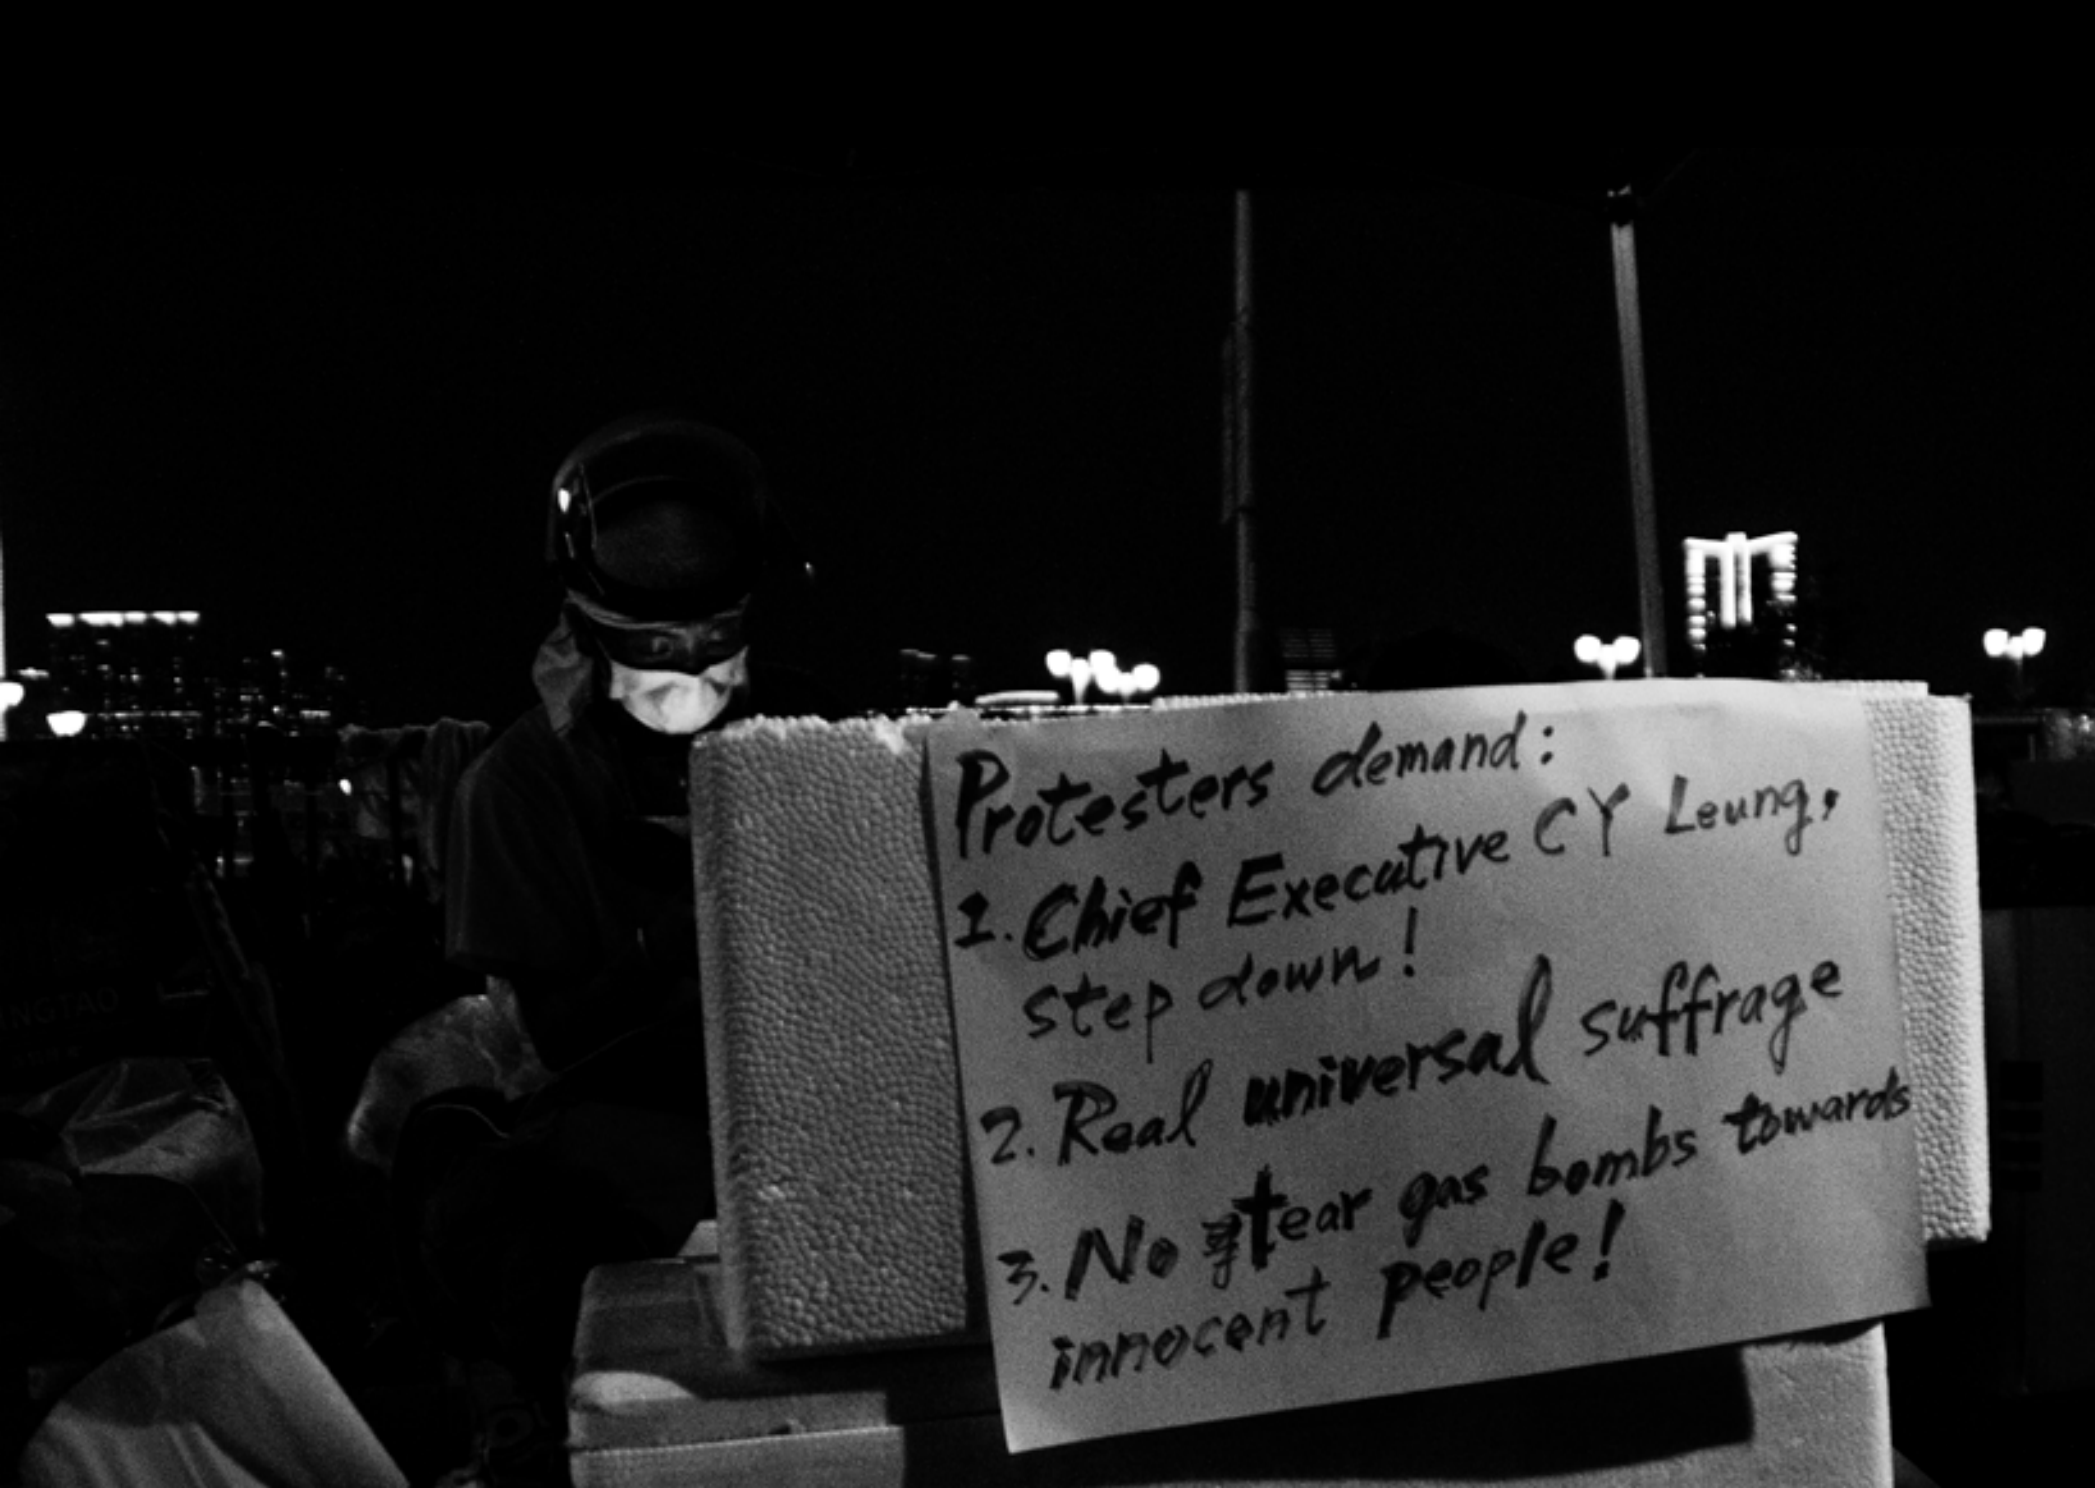 Protesters demand:
1. Chief Executive CY Leung,
step down!
2. Real universal suffrage
3. No tear gas bombs towards
innocent people!
NGTAO